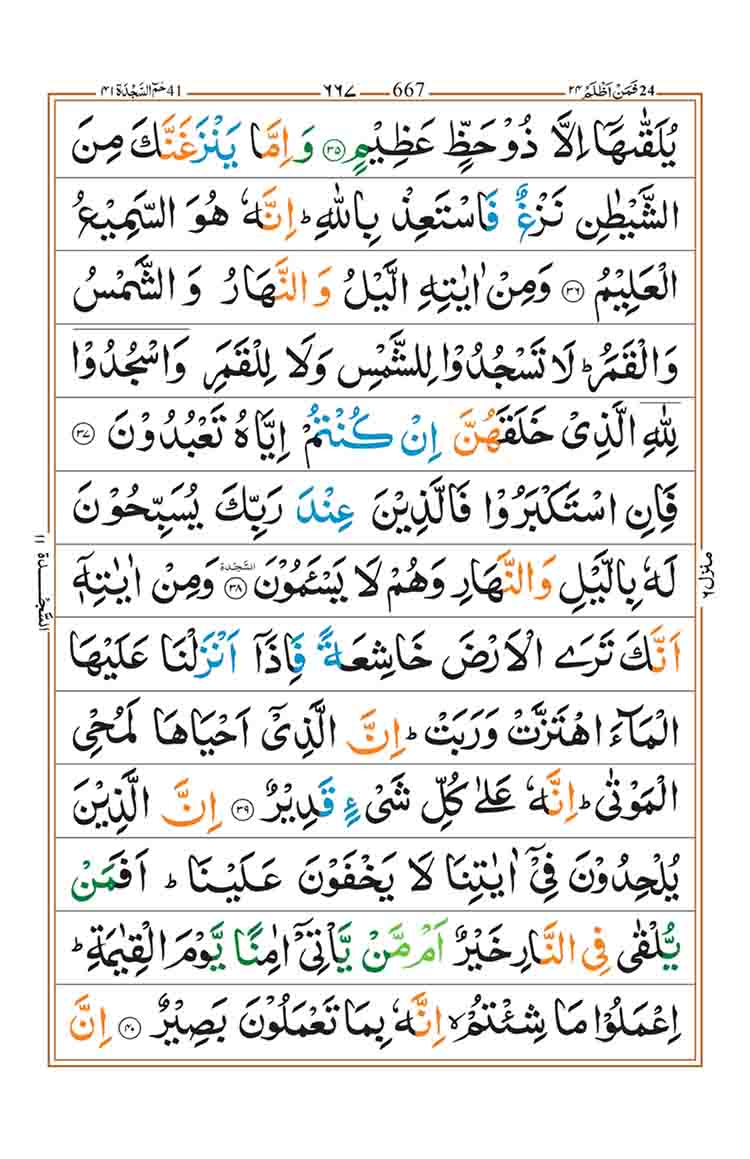 فَمَنْ اَظْلَمُ ٢٤ 24 667 ٦٦٧ حٰمٓ السَّجْدَة ٤١ 41
يُلَقّٰىهَاۤ اِلَّا ذُوْ حَظٍّ عَظِيْمٍ ٣٥ وَ اِمَّا يَنْزَغَنَّكَ مِنَ
الشَّيْطٰنِ نَزْغٌ فَاسْتَعِذْ بِاللّٰهِ ؕ اِنَّهٗ هُوَ السَّمِيْعُ
الْعَلِيْمُ ٣٦ وَمِنْ اٰيٰتِهِ الَّيْلُ وَالنَّهَارُ وَالشَّمْسُ
وَالْقَمَرُ ؕ لَا تَسْجُدُوْا لِلشَّمْسِ وَلَا لِلْقَمَرِ وَاسْجُدُوْا
لِلّٰهِ الَّذِيْ خَلَقَهُنَّ اِنْ كُنْتُمْ اِيَّاهُ تَعْبُدُوْنَ ٣٧
فَاِنِ اسْتَكْبَرُوْا فَالَّذِيْنَ عِنْدَ رَبِّكَ يُسَبِّحُوْنَ
لَهٗ بِالَّيْلِ وَالنَّهَارِ وَهُمْ لَا يَسْـَٔمُوْنَ ٣٨ السَّجْدَة وَمِنْ اٰيٰتِهٖۤ
اَنَّكَ تَرَى الْاَرْضَ خَاشِعَةً فَاِذَاۤ اَنْزَلْنَا عَلَيْهَا
الْمَآءَ اهْتَزَّتْ وَرَبَتْ ؕ اِنَّ الَّذِيْۤ اَحْيَاهَا لَمُحْيِ
الْمَوْتٰى ؕ اِنَّهٗ عَلٰى كُلِّ شَيْءٍ قَدِيْرٌ ٣٩ اِنَّ الَّذِيْنَ
يُلْحِدُوْنَ فِيْۤ اٰيٰتِنَا لَا يَخْفَوْنَ عَلَيْنَا ؕ اَفَمَنْ
يُّلْقٰى فِي النَّارِ خَيْرٌ اَمْ مَّنْ يَّاْتِيْۤ اٰمِنًا يَّوْمَ الْقِيٰمَةِ ؕ
اِعْمَلُوْا مَا شِئْتُمْ ۙ اِنَّهٗ بِمَا تَعْمَلُوْنَ بَصِيْرٌ ٤٠ اِنَّ
منزل ٦
السَّجْدَة ١١